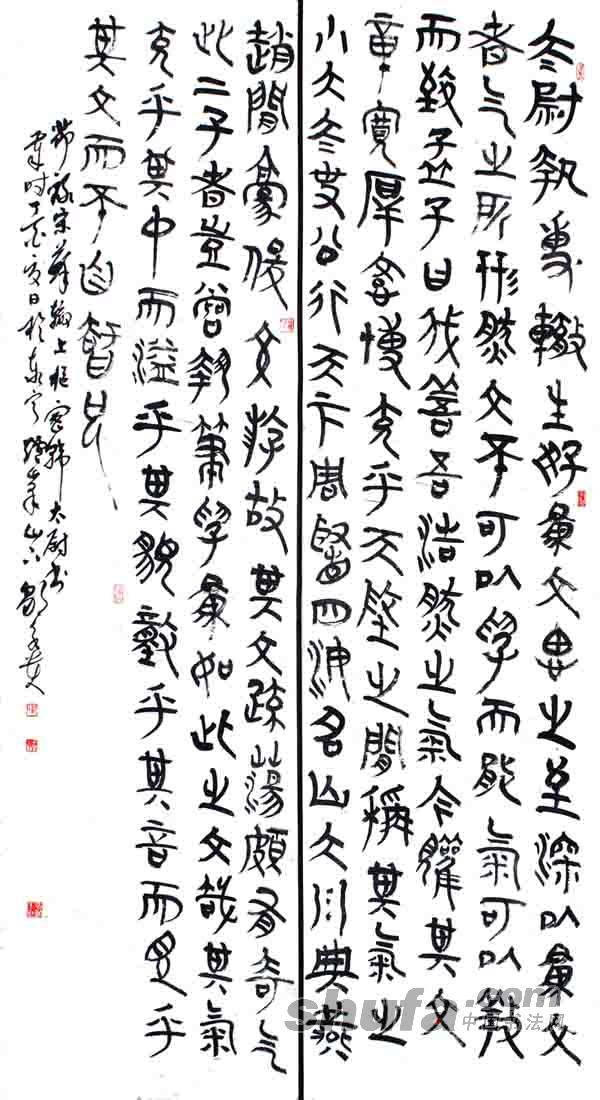 太尉執事轍生好為文思之至深以為文
者气之所形然文不可以學而能氣可以養
而致孟子曰我善吾浩然之氣今觀其文
章寬厚宏博充乎天地之間稱其气之
小大太史公行天下周覽四海名山大川與燕
趙間豪俊交游故其文疏蕩頗有奇气
此二子者豈嘗執筆學為如此之文哉其氣
充乎其中而溢乎其貌動乎其言而見乎
其文而不自知也
節錄宋蘇轍上樞密韓太尉書
時丁亥夏日於東
shufa.com
中国书法网